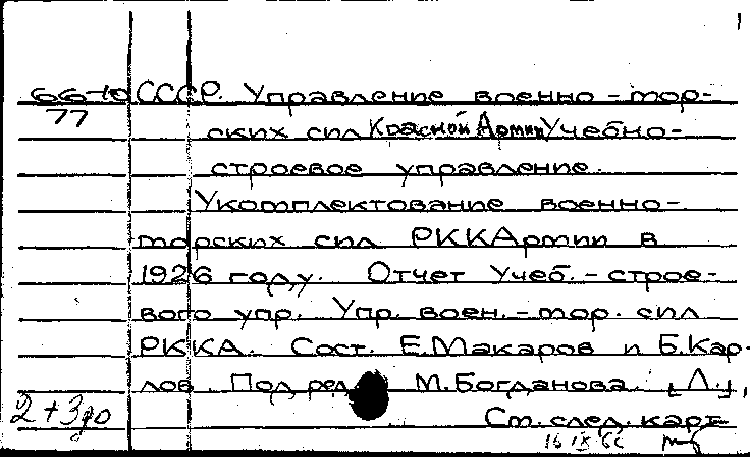 1
66-10 СССР. Управление военно-мор-
77
ских сил Красной Армии Учебно-
строевое управление.
Укомплектование военно-
морских сил РККАрмии в
1926 году. Отчет Учеб.-строе-
вого упр. Упр. воен.-мор. сил
РККА. Сост. Е.Макаров и Б.Кар-
лов. Под ред. М.Богданова. [Л.],
2+3до
См. след. карт.
16 IX 66